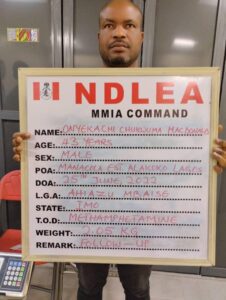 NDLEA
MMIA COMMAND
NAME: ONYEKACHI CHUKWUMA MACDONALD
AGE: 43 YEARS
SEX: MALE
POA: MANAGER EST ALAKUKO LAGOS
DOA: 25TH JUNE 2022
L.G.A: AHIAZU MBAISE
STATE: IMO
T.O.D: METHAMPHETAMINE
WEIGHT: 2.05 KG
REMARK: FOLLOW-UP